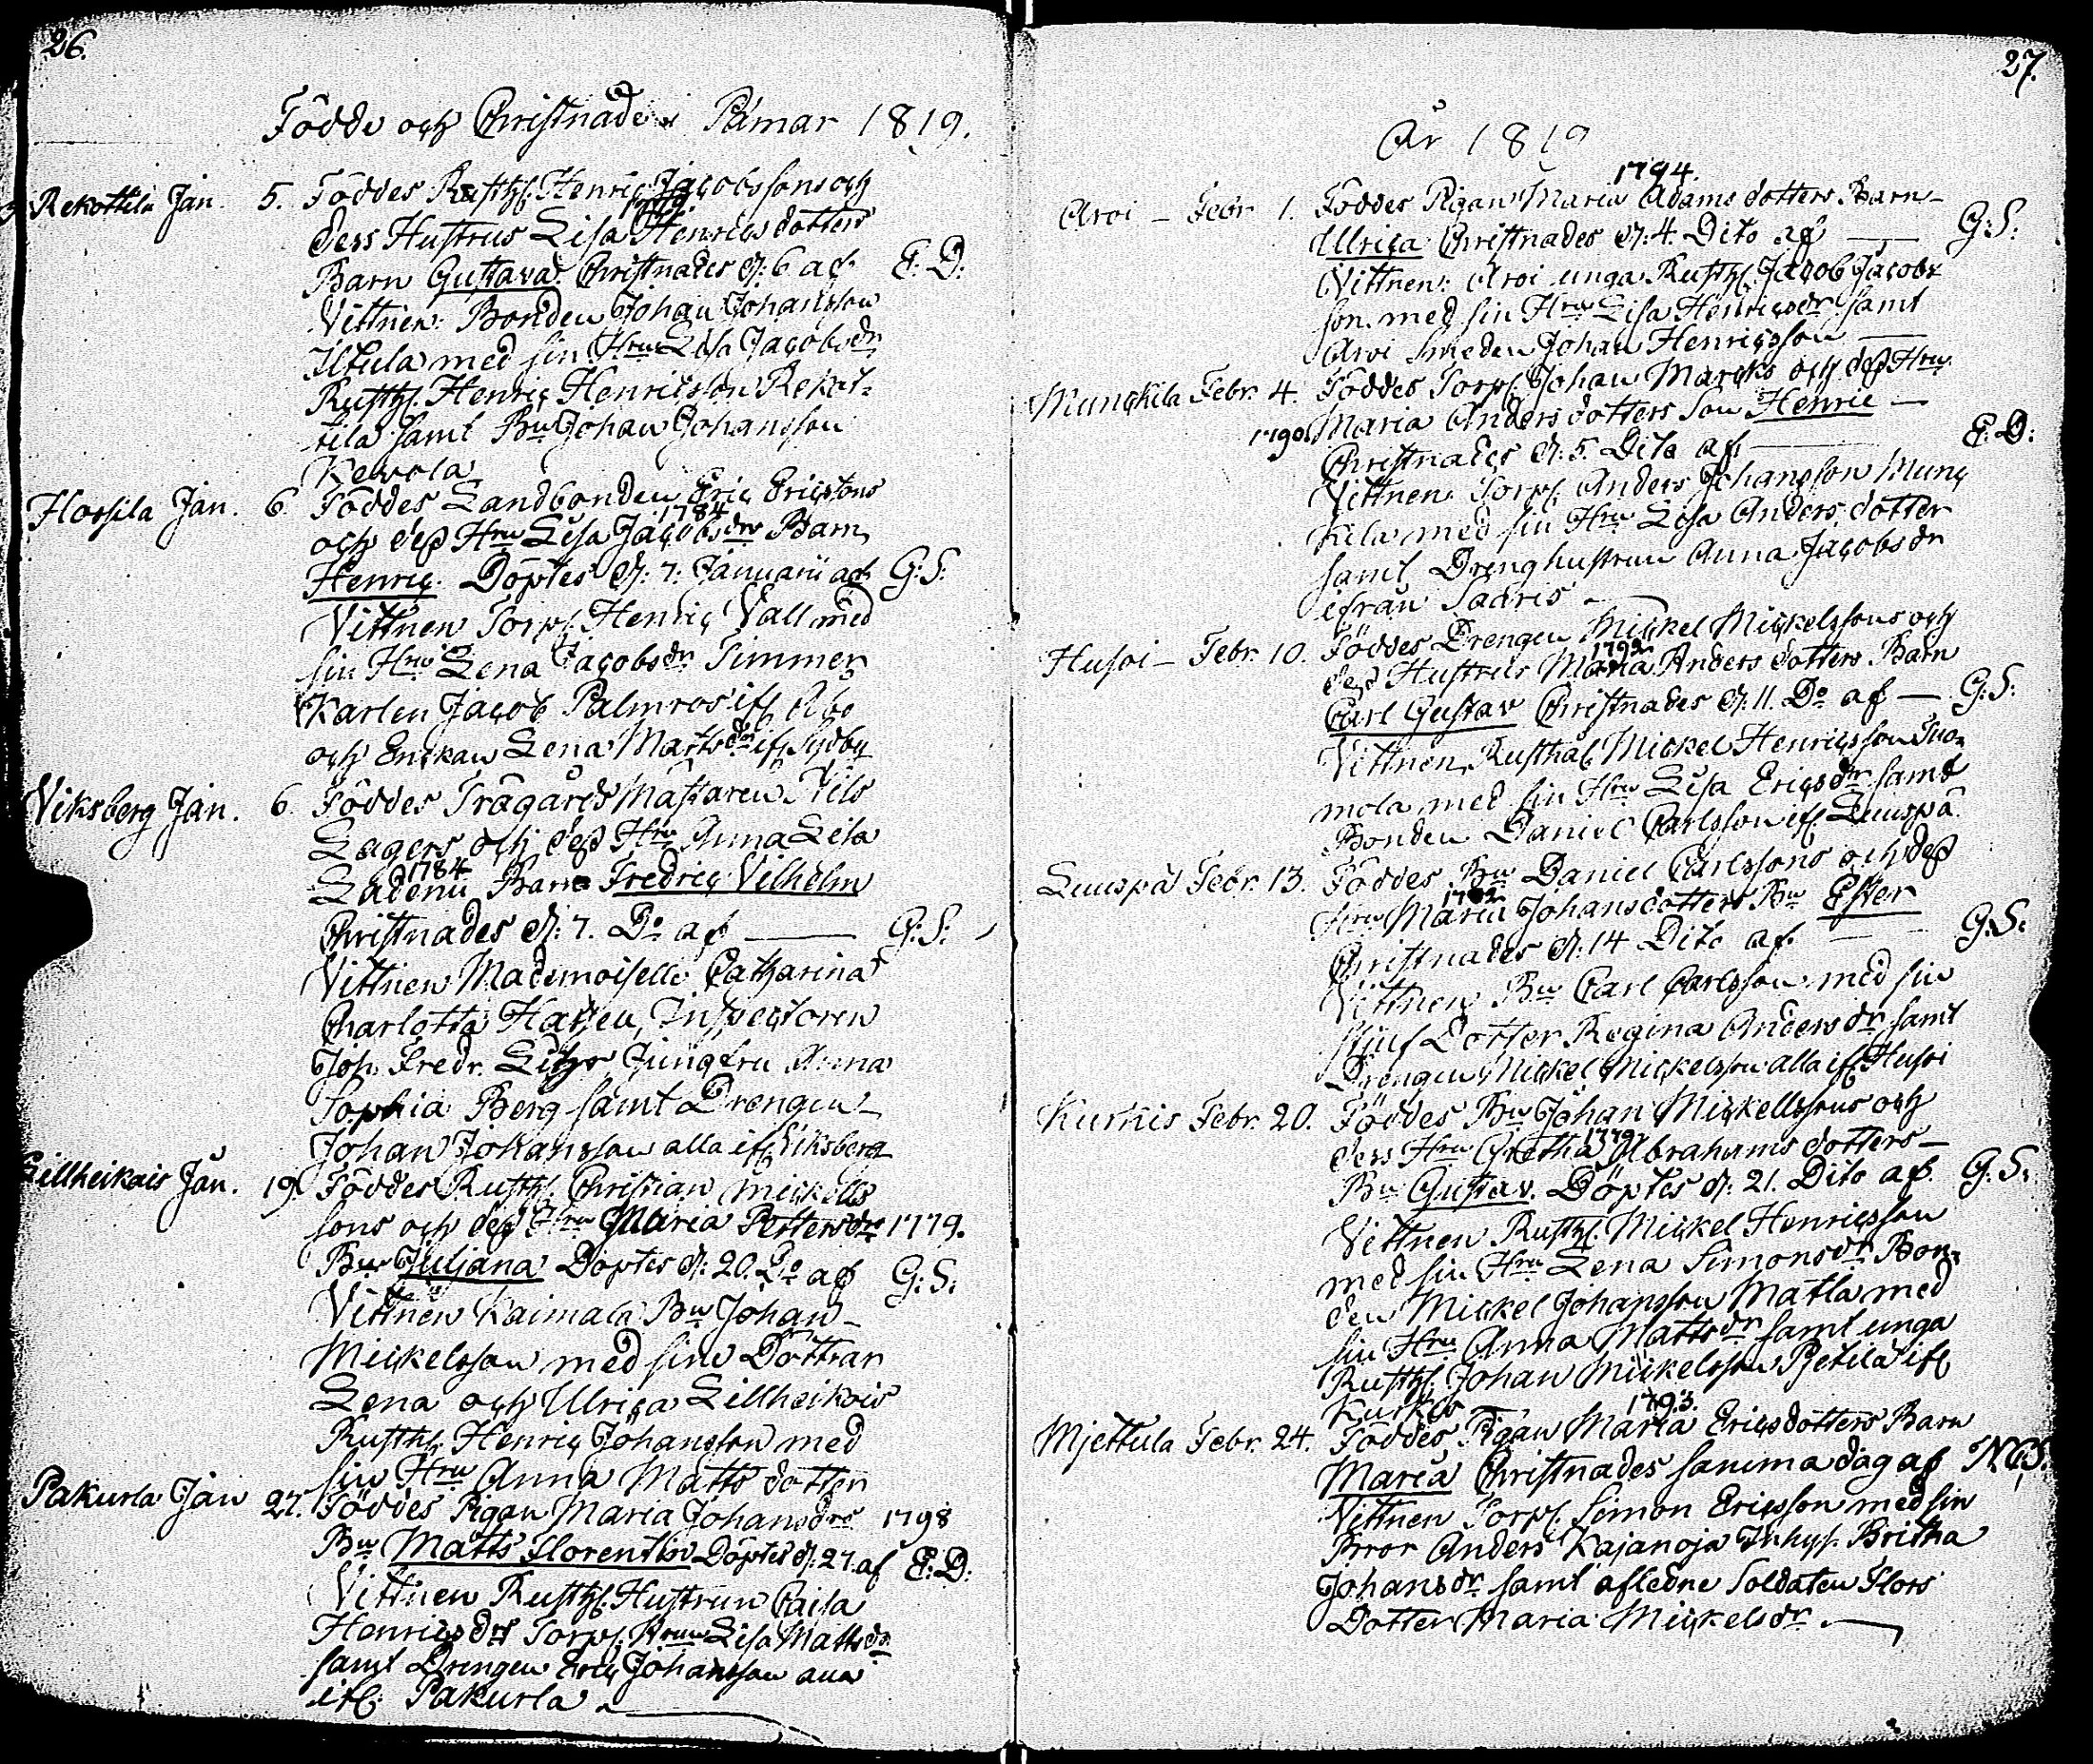 26.
Födde och Christnade i Pämar 1819.
Rekottila Jan. 5. Föddes Rusth. Henric Jacobssons och
dess Hustrus Lisa Henricsdotters
Barn Gustava. Christnades d: 6 af E: D:
Vittnen: Bonden Johan Johansson
med sin Hru Lisa Jacobsdr
Rusth. Henric Henricsson Rekot-
tila samt Bn Johan Johansson
Kevola
Horsila Jan. 6. Föddes Landbonden Eric Ericssons
1784
och dess Hru Lisa Jacobsdrs Barn
Henric. Döptes d: 7. Januarii af G: S:
Vittnen Torp. Henric Vall med
sin Hru Lena Jacobsdr Timmer
Karlen Jacob Palmros if. Åbo
och Enkan Lena Mattsdr if.
Viksberg Jan. 6. Föddes Trägårds Mästaren Nils
Lagers och dess Hru Anna Lisa
1784
Barn Fredric Vilhelm
Christnades d: 7. Do af G: S:
Vittnen Mademoiselle Catharina
Charlotta Inspectoren
Joh. Fredr. Jungfru Anna
Sophia Berg samt Drengen
Johan Johansson alla if. Viksberg
Lillheikois Jan. 19. Föddes Rusth. Christian Mickels
sons och dess Hru Maria Pettersdrs 1779.
Bn Juliana Döptes d: 20. Do af G: S:
Vittnen Kaimala Bn Johan
Mickelsson med sine Döttrar
Lena och Ulrica Lillheikois
Rusth. Henric Johansson med
sin Hru Anna Matts dotter
Pakurla Jan 27. Föddes Pigan Maria Johansdrs 1798
Bn Matts Florentin Döptes d: 27. af E: D:
Vittnen Rusth. Hustrun Caisa
Henricsdr Torp. Hrun Lisa Mattsdr
samt Drengen Eric Johansson alla
if. Pakurla
27.
År 1819
1794.
Aroi – Febr. 1. Föddes Pigan Maria Adams dotters Barn
Ulrica Christnades d: 4. Dito af G: S:
Vittnen: Aroi unga Rusth. Jacob Jacobs
son. med sin Hru Lisa Henricsdr samt
Aroi Smeden Johan Henricsson
Munckila Febr. 4. Föddes Torp. Johan Marcks och dess Hru
1790 Maria Anders dotters Son Henric
Christnades d: 5. Dito af E: D:
Vittnen. Torp. Anders Johansson Munc
kila med sin Hru Lisa Anders dotter
samt Dreng hustrun Anna Jacobsdr
ifrån Saaris
Husoi – Febr. 10. Föddes Drengen Mickel Mickelssons och
1792
dess Hustrus Maria Anders dotters Barn
Carl Gustav Christnades d: 11. Do af G: S:
Vittnen Rusthål. Mickel Henricsson Tuo-
mola med sin Hru Lisa Ericsdr samt
Bonden Daniel Carlsson if. Luuspä
Luuspä Febr. 13. Föddes Bn Daniel Carlssons och dess
Hru Maria Johansdotters Bn Ester
Christnades d: 14 Dito af G: S:
Vittnen Bn Carl Carlsson med sin
stjuf Dotter Regina Andersdr samt
Drengen Mickel Mickelsson alla if. Husoi
Kurkis Febr. 20. Föddes Bn Johan Mickellssons och
1779
dess Hru Gretha Abrahams dotters
Bn Gustav. Döptes d: 21. Dito af G: S:
Vittnen Rusth. Mickel Henricsson
med sin Hru Lena Simonsdr Bon-
den Mickel Johansson Matla med
sin Hru Anna Mattsdr samt unga
Rusth. Johan Mickelsson Pjetilä if.
Kurkis
1793.
Mjettula Febr. 24. Föddes Pigan Maria Ericsdotters Barn
Maria Christnades samma dag af
Vittnen Torp. Simon Ericsson med sin
Bror Anders Kajanoja Inhys. Britha
Johansdr samt afledne Soldaten Flors
Dotter Maria Mickelsdr